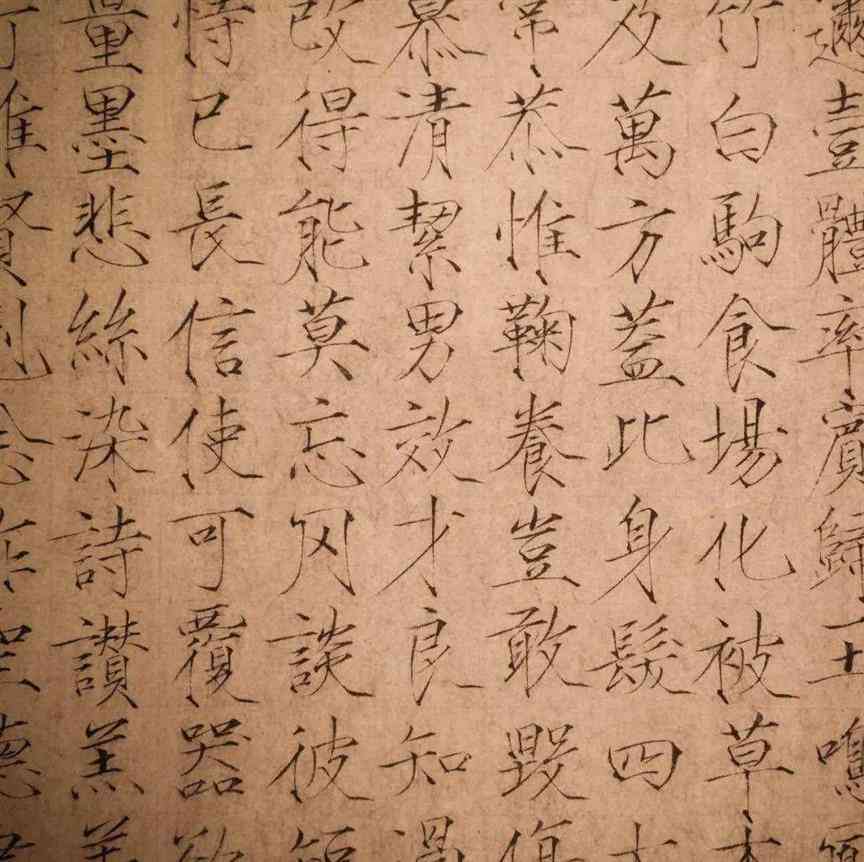 邇壹體率賓歸王鳴
竹白駒食場化被草木
及萬方蓋此身髮四大
常恭惟鞠養豈敢毀傷
慕清絜男效才良知過
改得能莫忘罔談彼短
恃己長信使可覆器欲
量墨悲絲染詩讚羔羊
維賢剋念作聖德